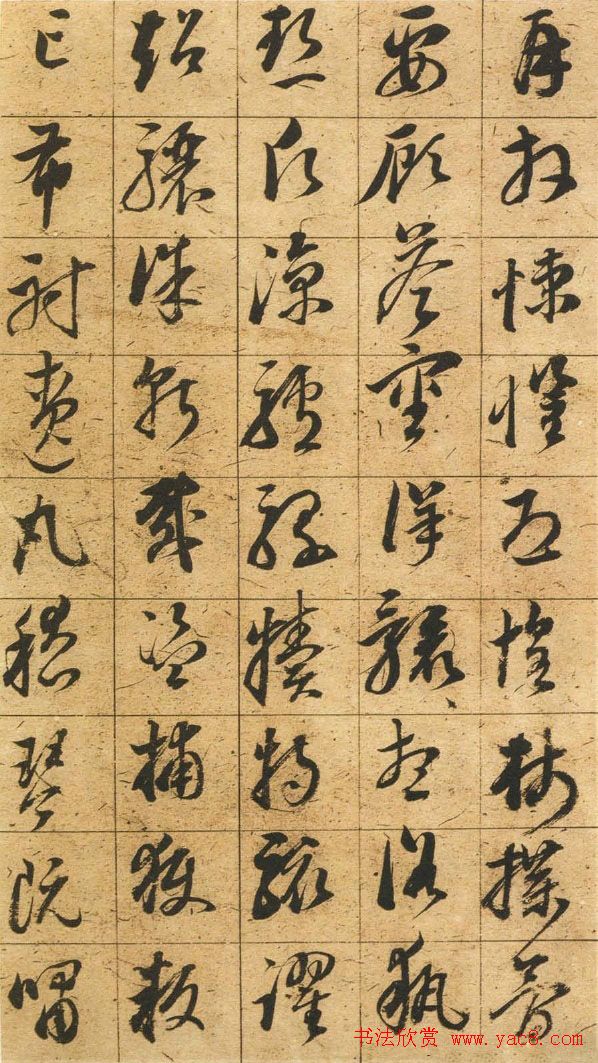 再拜悚懼恐惶牋牒簡
要顧答審詳骸想浴執
熱願涼驢騾犢特駭躍
超驤誅斬賊盜捕獲叛
亡布射遼丸嵇琴阮嘯
书法欣赏 www.yac8.com